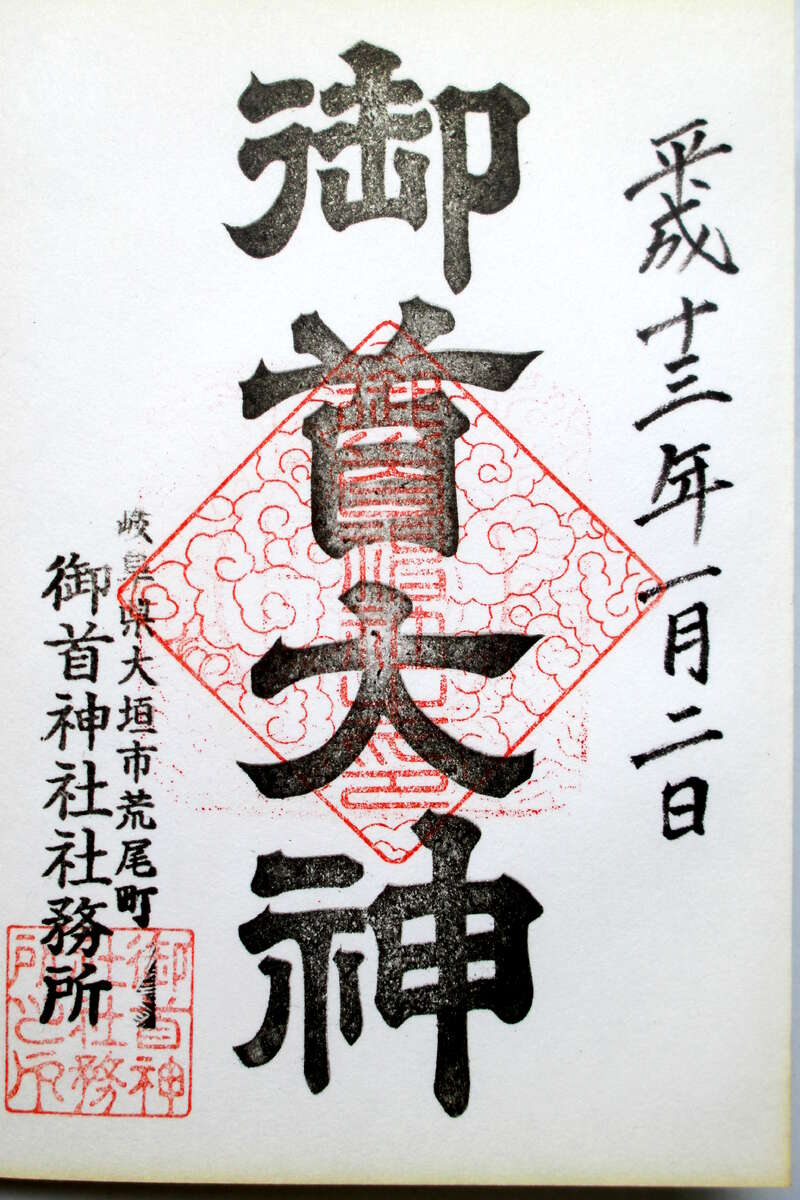 平成十三年一月二日
御首大神
岐阜県大垣市荒尾町
御首神社社務所
御首神
社社務
所之印